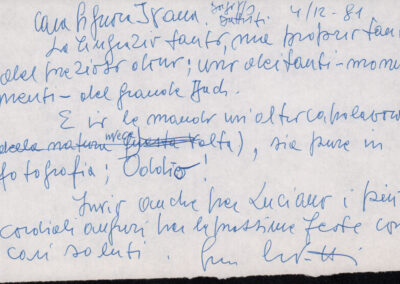 Cara Signora Ivana, 4/12-81
La ringrazio tanto, ma proprio tan
del prezioso dono; uno dei tanti-monu
menti-del grande Bach.
E io le mando un altro capolavoro
della natura invece questa volta), sia pure in
fotografia; Oddio!
Invio anche per Luciano i più
cordiali auguri per le prossime feste con
cari saluti.